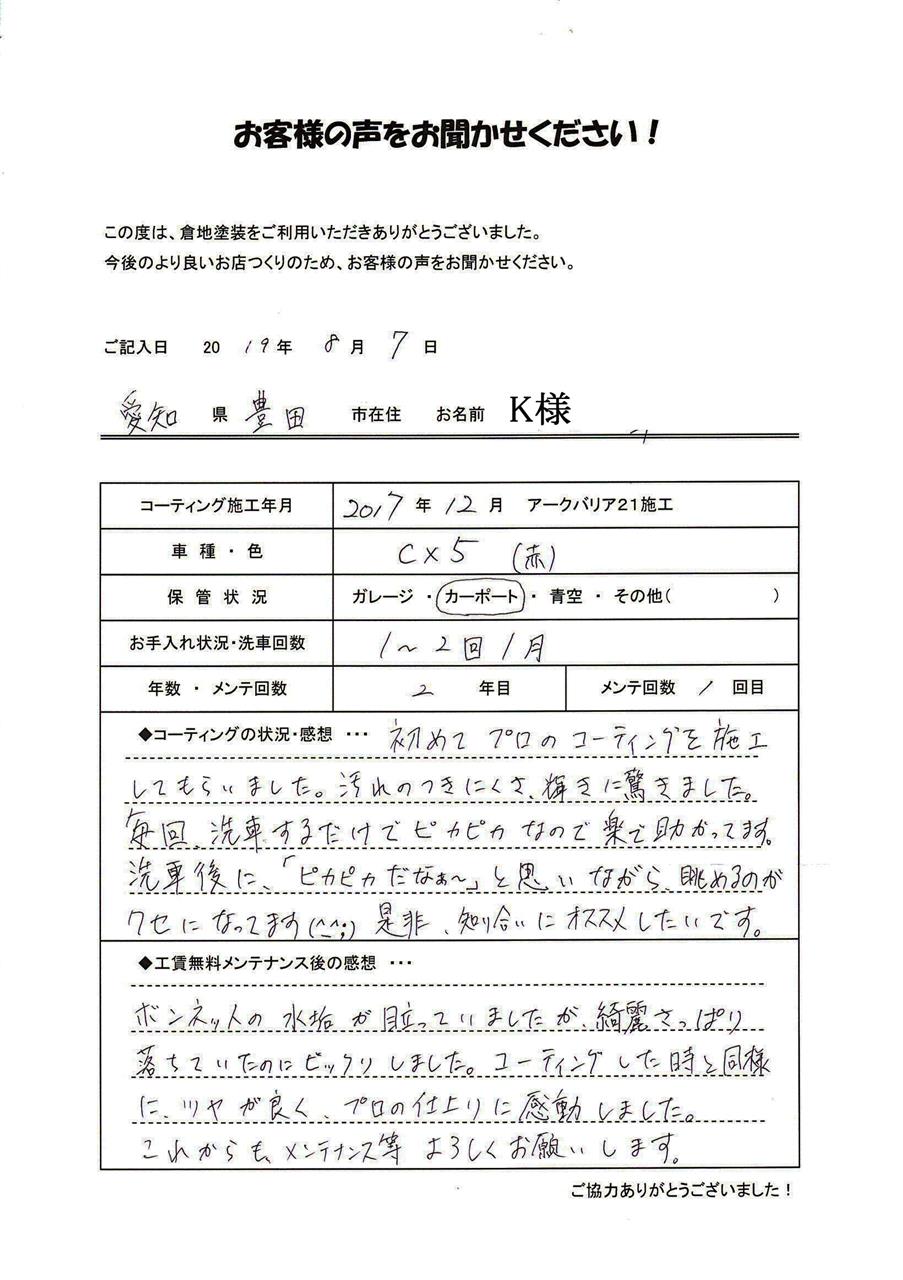 お客様の声をお聞かせください！
この度は、倉地塗装をご利用いただきありがとうございました。
今後のより良いお店つくりのため、お客様の声をお聞かせください。
ご記入日 2019年 8月 7日
愛知 県 豊田 市在住 お名前 K様
コーティング施工年月 2017年 12月 アークバリア21施工
車種・色 CX5 (赤)
保管状況 ガレージ・カーポート・青空・その他( )
お手入れ状況・洗車回数 1～2回1月
年数・メンテ回数 2 年目 メンテ回数 / 回目
◆コーティングの状況・感想 … 初めて プロのコーティングを施工
してもらいました。汚れのつきにくさ、輝きに驚きました。
毎回、洗車するだけでピカピカなので楽で助かってます。
洗車後に、「ピカピカだなぁ～」と思いながら、眺めるのが
クセになってます(^^;) 是非、知り合いにオススメしたいです。
◆工賃無料メンテナンス後の感想 …
ボンネットの水垢が目立っていましたが、綺麗さっぱり
落ちていたのにビックリしました。コーティングした時と同様
に、ツヤが良く、プロの仕上りに感動しました。
これからも、メンテナンス等よろしくお願いします。
ご協力ありがとうございました！